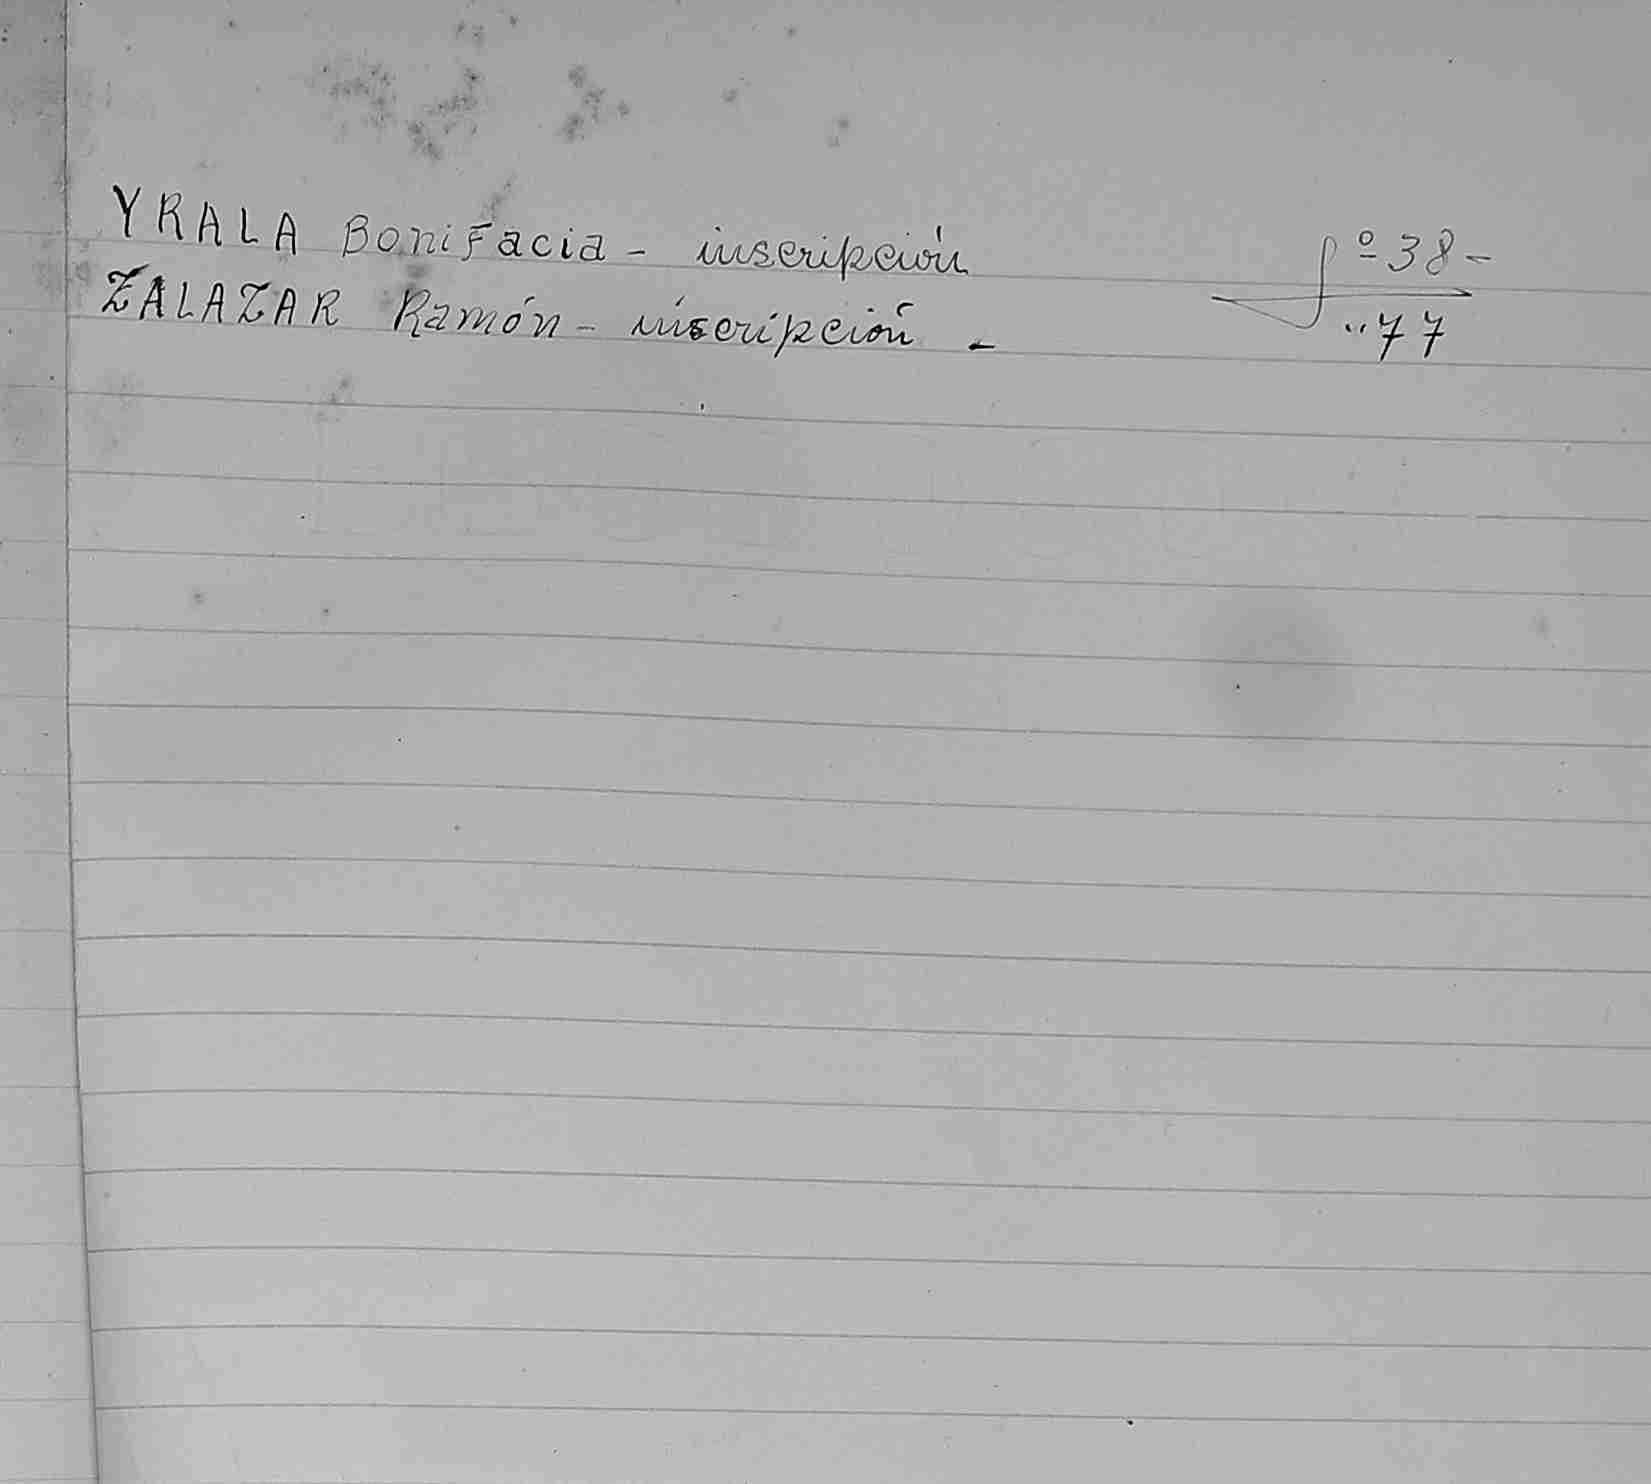 YRALA Bonifacia - inscripción fº 38-
ZALAZAR Ramón - inscripción - " 77